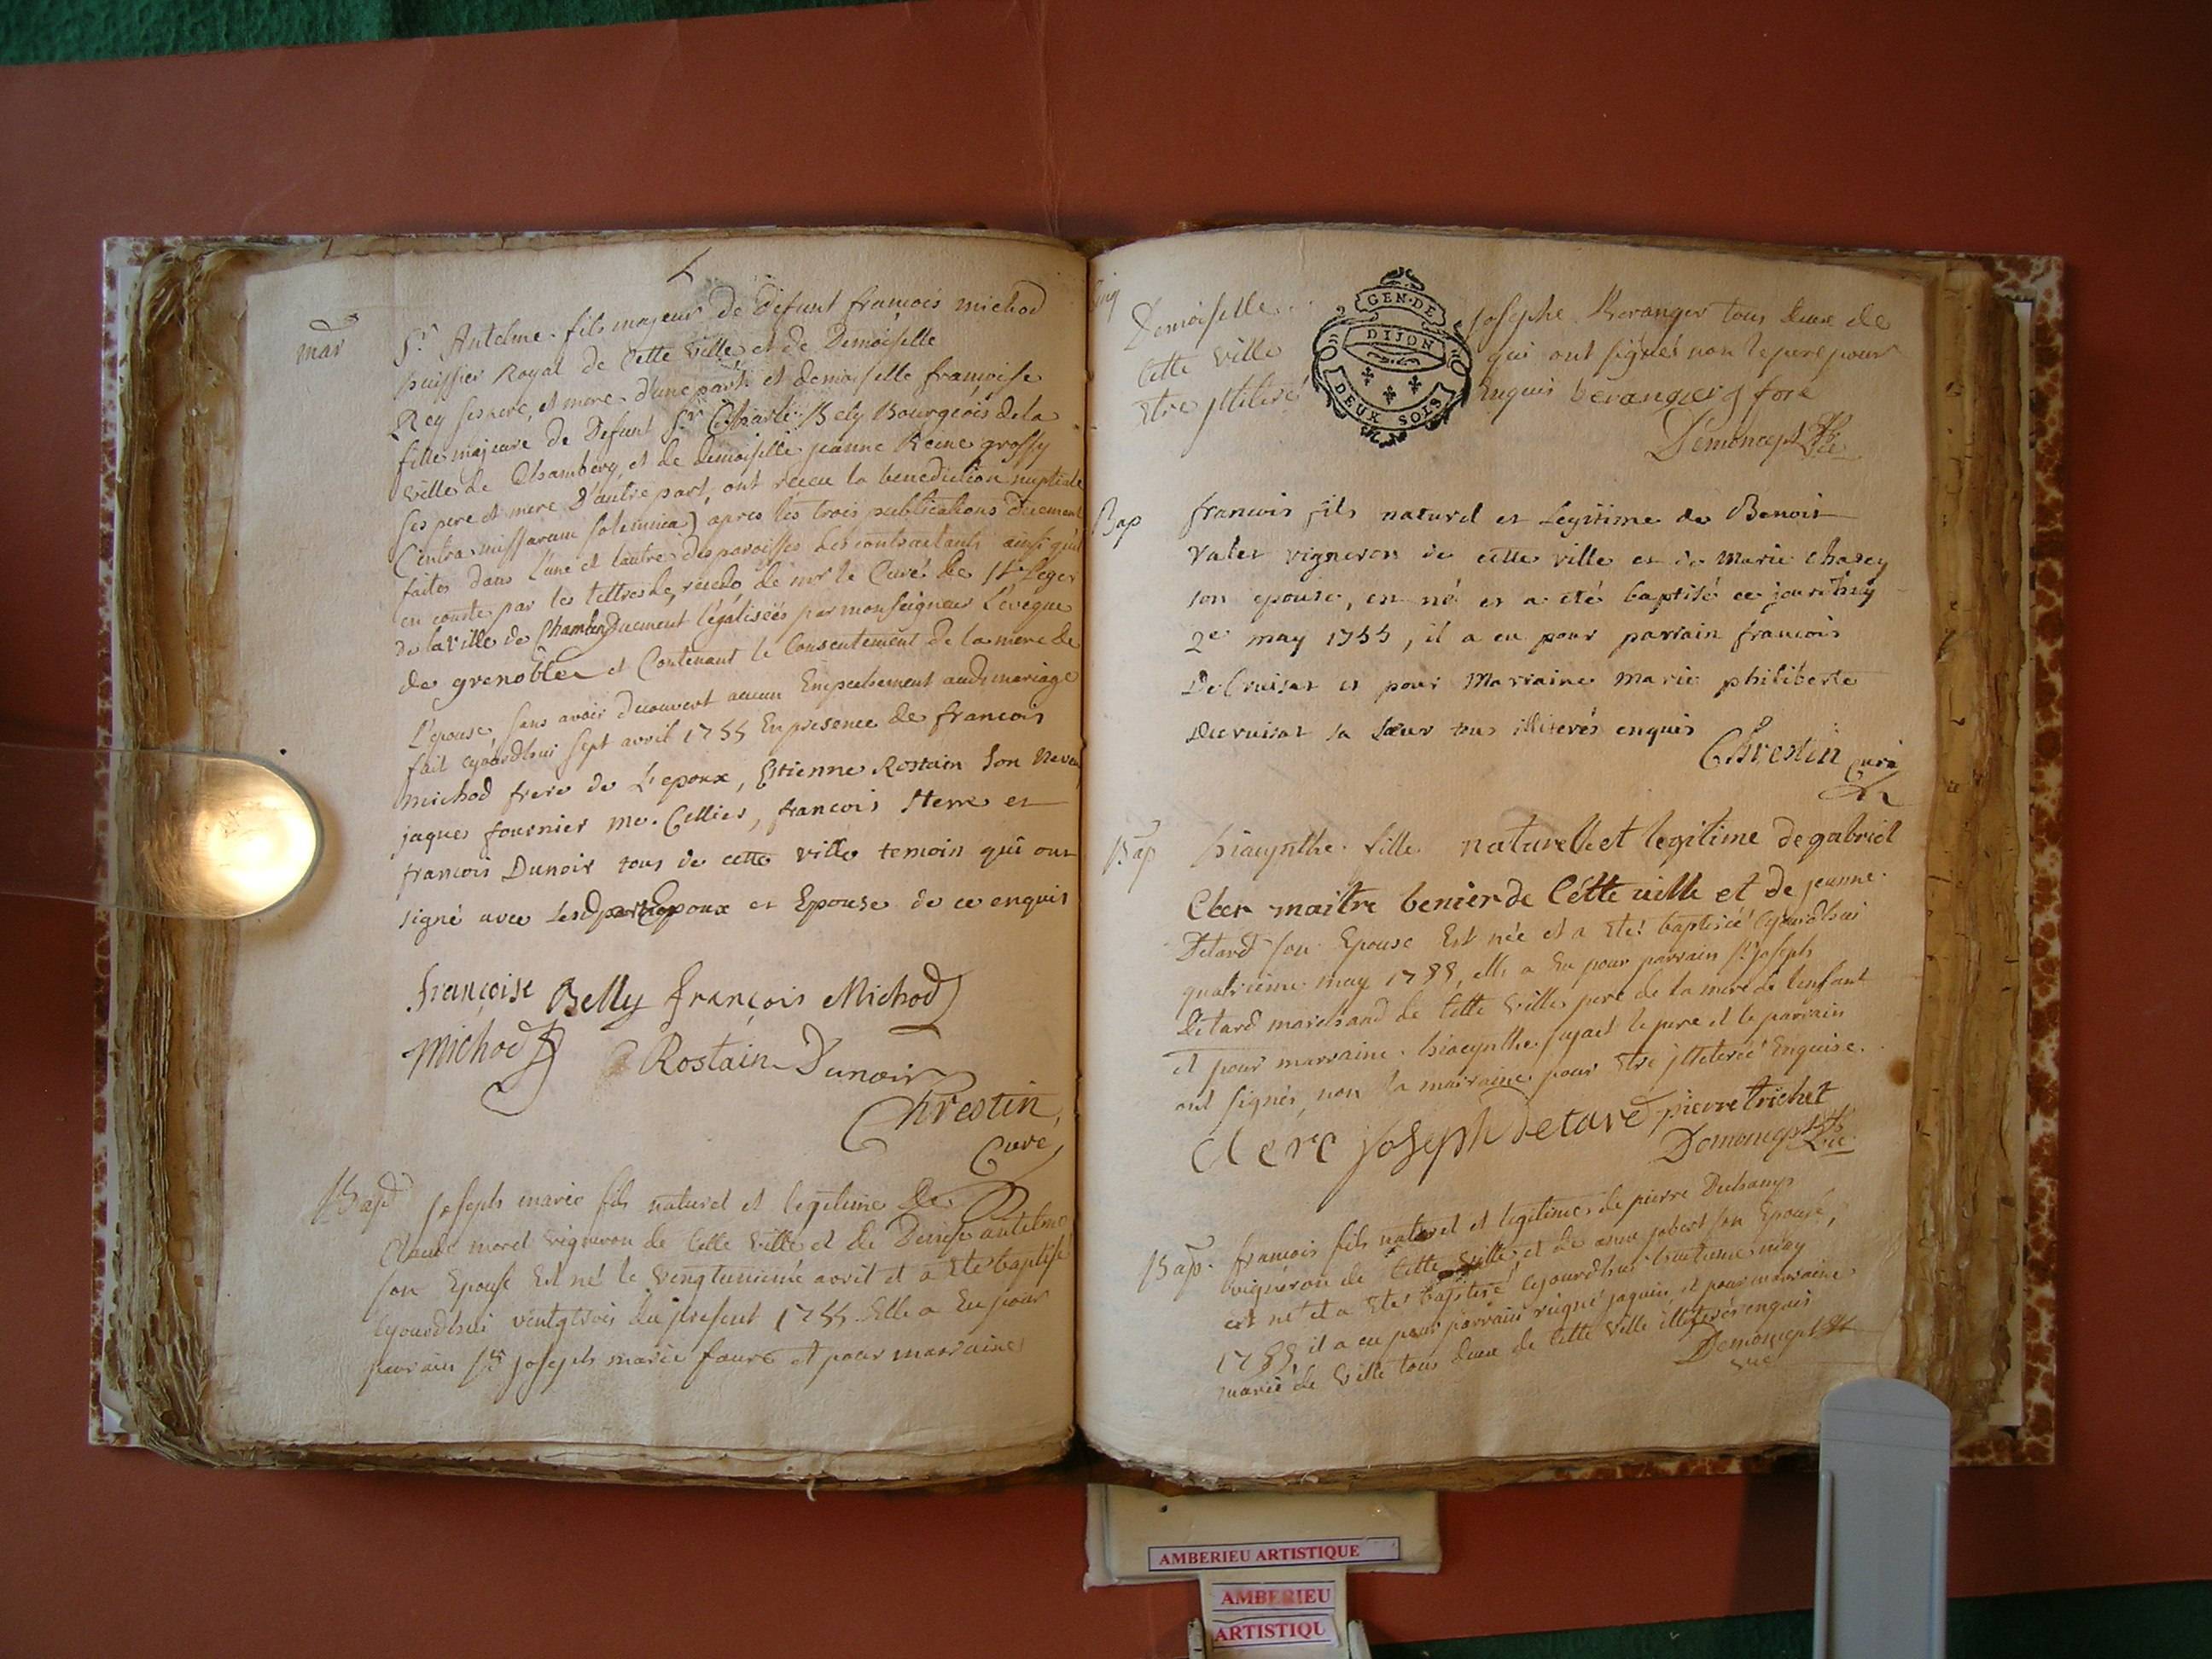 mar
Sr Antelme fils majeur de defunt françois michod
huissier Royal de Cette Ville et de Demoiselle
Rey ses pere et mere d'une part et demoiselle françoise
fille majeure de Defunt Sr Charle Bely Bourgeois de la
ville de Chambery et de demoiselle jeanne Reine grossy
ses pere et mere d'autre part, ont receu la benediction nuptiale
(intra missarum solemnia) apres les trois publications duement
faites dans l'une et l'autre des paroisses des contractants ainsi qu'il
en conste par les lettres de recedo de mr le Curé de St Leger
de la ville de Chambery Duement légalisées par monseigneur L'evêque
de grenoble et Contenant le Consentement de la mere de
L'epouse, sans avoir decouvert aucun Empechement audt mariage
fait cejourdhui sept avril 1755 En presence de francois
michod frere de L'epoux, Estienne Rostain son neveu,
jaques fournier me. Cellier, francois Sterre et
francois Dunoir tous de cette ville temoin qui ont
signé avec Lesd Epoux et Epouse de ce enquis
françoise Belly françois Michod
michod Rostain Dunoir
Chrestin
Curé
Bapt
joseph marie fils naturel et legitime de
Claude morel vigneron de Cette Ville et de Denise antelme
son Epouse Est né le vingtunieme avril et a Ete baptisé
cejourdhui vingttrois du present 1755 Elle a Eu pour
parrain Sr joseph marie faure et pour marraine
cinq
Demoiselle josephe Beranger tous deux de
Cette ville qui ont signés non le pere pour
Etre jlliteré Enquis beranger j fore
Demoncept Vic
GEN. DE
DIJON
DEUX SOLS
Bap
francois fils naturel et Legitime de Benoit
Vater vigneron de cette ville et de Marie Charcy
son epouse, est né et a eté baptisé ce jourdhuy
2e may 1755, il a eu pour parrain francois
DeCruisat et pour Marraine Marie philiberte
Decruisat sa soeur tous illiterés enquis
Chrestin Curé
Bap
hiacynthe fille naturelle et legitime de gabriel
Cler maitre benier de Cette uille et de jeanne
Detard son Epouse Est née et a Eté baptisée Cejourdhui
quatrieme may 1755, elle a Eu pour parrain Sr joseph
Detard marchand de Cette Ville pere de la mere de l'enfant
et pour marraine hiacynthe sujaet le pere et le parrain
ont signés, non la marraine pour Etre jlleterée Enquise.
Clerc joseph detard pierre trichet
Demoncept Vic
Bap.
francois fils naturel et legitime de pierre Duchamp
vigneron de Cette Ville et de anne jobert son Epouse,
est né et a Eté baptisé Cejourdhui huitieme may
1755, il a eu pour parrain reigné jaquin et pour marraine
marie de Ville tous deux de Cette Ville illeterés enquis
Demoncept
Vic
AMBERIEU ARTISTIQUE
AMBERIEU
ARTISTIQU